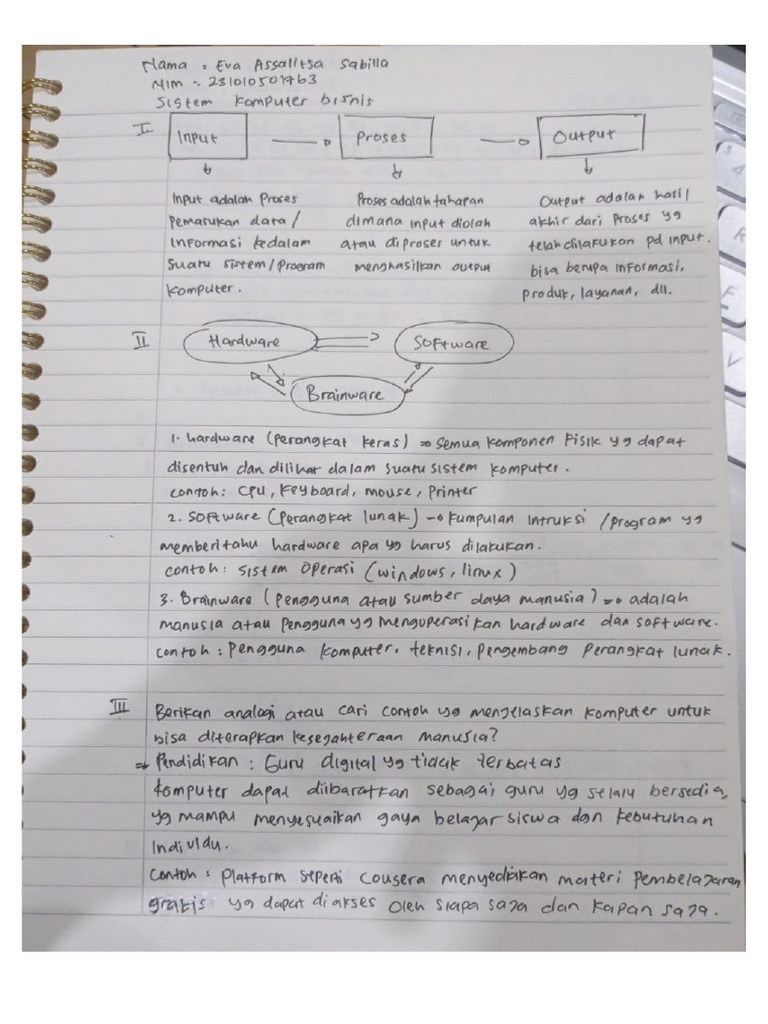 Nama : Eva Assalitsa Sabilla
Nim : 231010501763
Sistem Komputer bisnis
I
Input
Proses
Output
Input adalah Proses
Pemasukan data /
Informasi kedalam
Suatu sistem / Program
Komputer.
Proses adalah tahapan
dimana input diolah
atau diproses untuk
menghasilkan output
Output adalah hasil
akhir dari proses yg
telah dilakukan pd input.
bisa berupa informasi,
produk, layanan, dll.
II
Hardware
Software
Brainware
1. hardware (perangkat keras) => Semua komponen fisik yg dapat
disentuh dan dilihat dalam suatu sistem komputer.
contoh : CPU, keyboard, mouse, printer
2. Software (perangkat lunak) → kumpulan intruksi / program yg
memberitahu hardware apa yg harus dilakukan.
contoh : sistem operasi (windows, linux)
3. Brainware (pengguna atau sumber daya manusia) => adalah
manusia atau pengguna yg mengoperasikan hardware dan software.
contoh : pengguna komputer, teknisi, pengembang perangkat lunak.
III
Berikan analogi atau cari contoh yg menjelaskan komputer untuk
bisa diterapkan kesejahteraan manusia?
=> Pendidikan : Guru digital yg tidak terbatas
komputer dapat diibaratkan sebagai guru yg selalu bersedia,
yg mampu menyesuaikan gaya belajar siswa dan kebutuhan
individu.
contoh : platform seperti cousera menyediakan materi pembelajaran
gratis yg dapat diakses oleh siapa saja dan kapan saja.